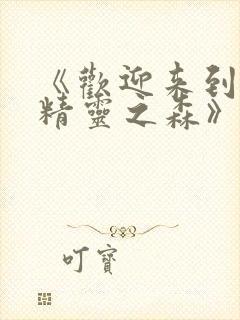 《歡迎来到
精靈之森》
叮寶